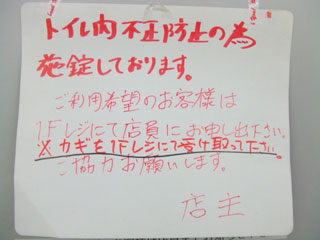 トイレ内不正防止の為
施錠しております。
ご利用希望のお客様は
1Fレジにて店員にお申し出下さい。
※カギを1Fレジにて受け取って下さい。
ご協力お願いします。
店主